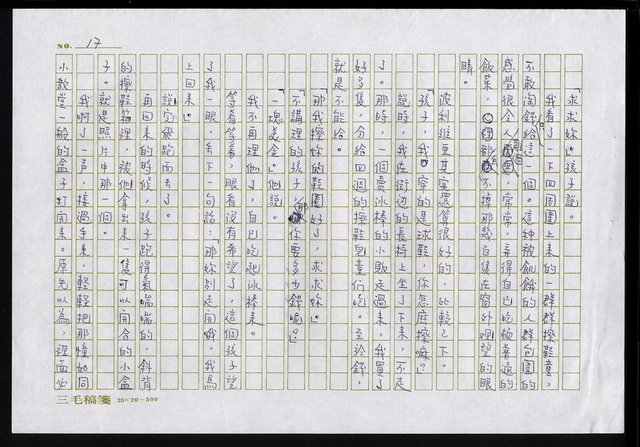 NO. 17
「求求妳」。孩子說。
我看了一下四周圍上來的一群群擦鞋童，
不敢掏錢給這一個。這種被飢餓的人群包圍的
感覺很令人，常常，弄得自己吃頓普通的
飯菜，都不擇那幾自隻在窗外觀望的眼
睛。
波利維亞其實還算很好的，比較之下。
「孩子，我穿的是球鞋，你怎麼擦嘛？」
說時，我在街邊的長椅上坐了下來，不走
了。那時，一個賣冰棒的小販走過來，我買了
好多隻，分給四個的擦鞋自童們吃。至於錢，
就是不能給。
「那我擦妳的鞋圈好了，求求妳」。
「不講理的孩子，那你要多少錢呢？」
「一塊美金」。他說。
我不再理他了，自己吃起冰棒來。
等着等着，眼看沒有希望了，這個孩子望
了我一眼，丟下一句話：「那妳別走開哦，我馬
上回來」。
說完飛跑而去了。
再回來的時候，孩子跑得氣喘喘的，斜背
的擦鞋箱裡，被他拿出來一隻可以開合的小盒
子。就是照片中那一個。
我啊了一声，接過手來，輕輕把那幢如同
小教堂一般的盒子打開來。原先以為，裡面必
三毛稿箋 25×20=500